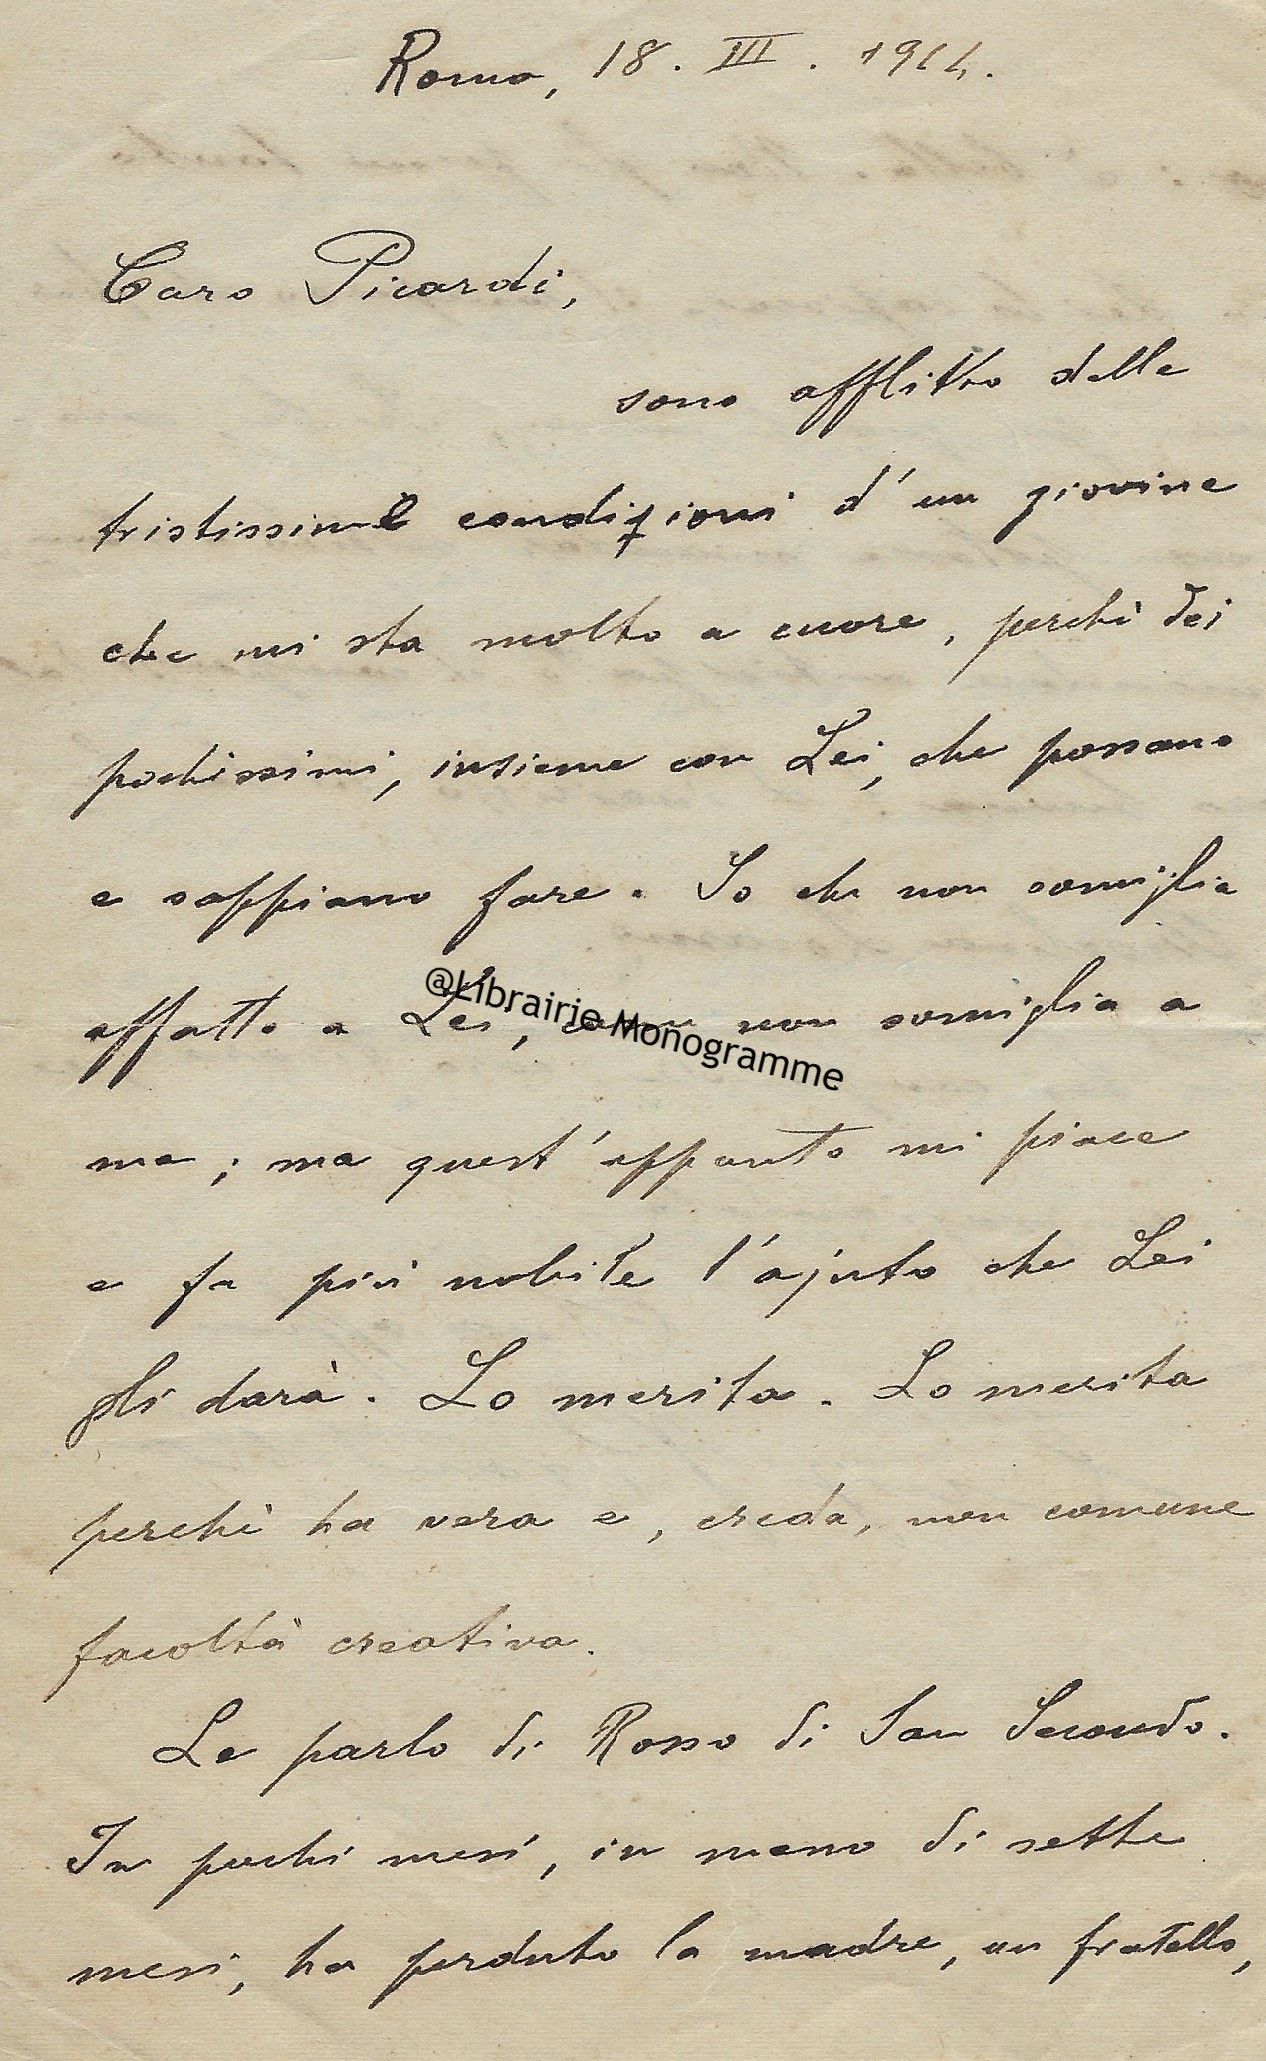 Roma, 18. III. 1914.
Caro Picardi,
sono afflitto delle
tristissime condizioni d'un giovine
che mi sta molto a cuore, perchè dei
pochissimi, insieme con Lei, che possano
e sappiano fare. So che non somiglia
affatto a Lei, come non somiglia a
me; ma quest'appunto mi piace
e fa più nobile l'ajuto che Lei
gli darà. Lo merita. Lo merita
perchè ha vera e, creda, non comune
facoltà creativa.
Le parlo di Rosso di San Secondo.
In pochi mesi, in meno di sette
mesi, ha perduto la madre, un fratello,
@Librairie Monogramme